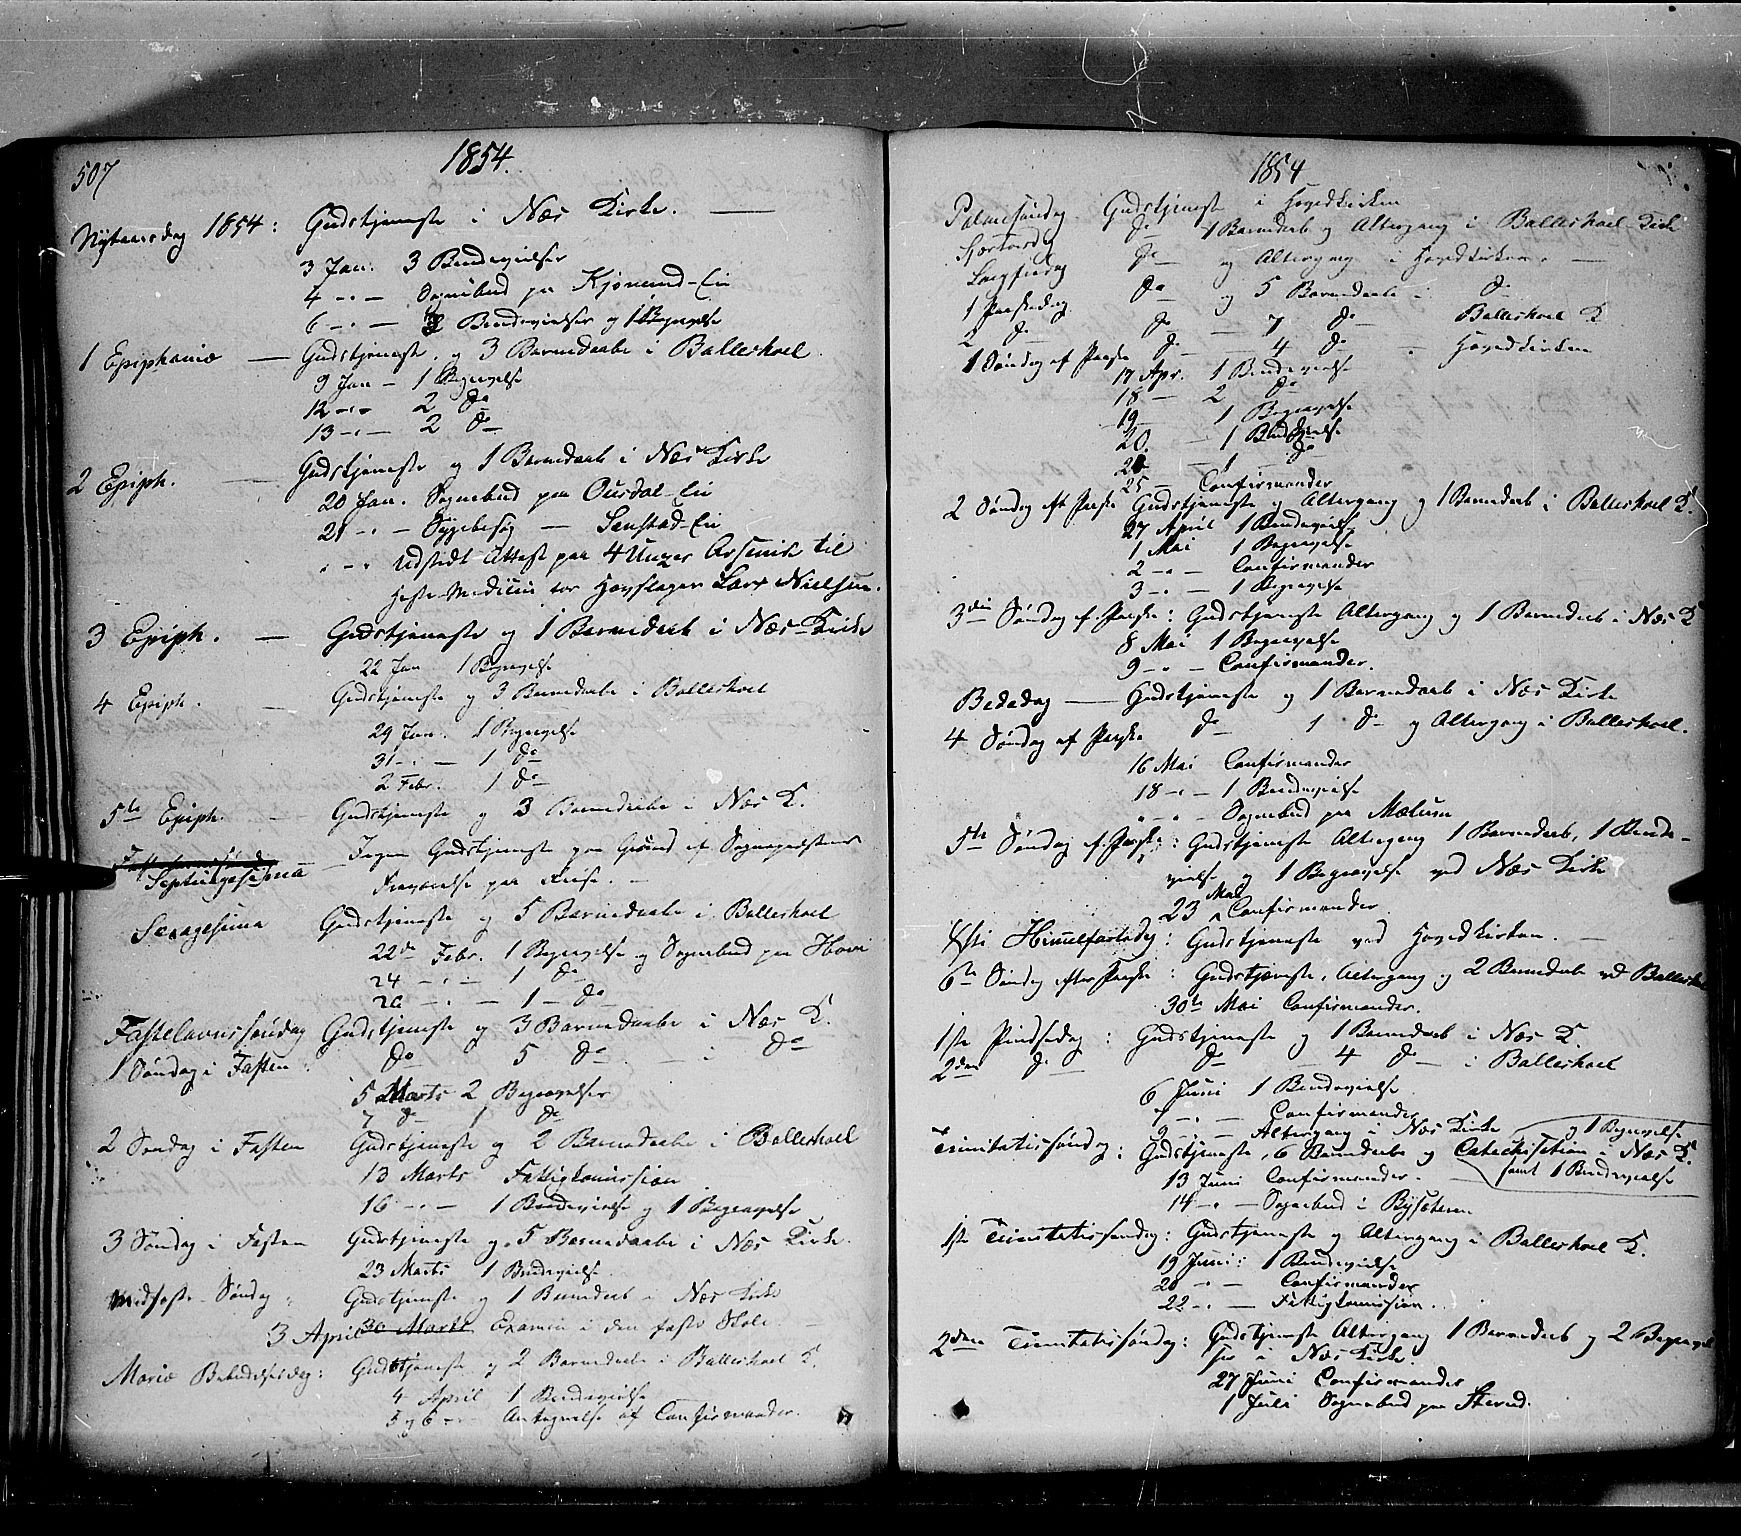 507
1854.
Nytaarsdag 1854: Gudstjeneste i Næs Kirke. —
3 Jan. 3 Brudevielser
4 -"- — Sognebud paa -Eie
6 -"- — Brudevielser og 1 Begravelse
1 Epiphaniæ — Gudstjeneste og 3 Barnedaabe i Balleshoel.
9 Jan — 1 Begravelse
12 -"- 2 do
13 -"- — 2 do
2 Epiph. — Gudstjeneste og 1 Barnedaab i Næs Kirke
20 Jan. Sognebud paa -Eie
21 -"- — Sygebesøg — -Eie
-"- Udstedt Attest paa 4 Unzer Arsenik til
Heste-Medicin for Hovslager Lars Nielsen.
3 Epiph. — Gudstjeneste og 1 Barnedaab i Næs-Kirke
22 Jan 1 Begravelse
4 Epiph. — Gudstjeneste og 3 Barnedaabe i Balleshoel
29 Jan. 1 Begravelse
31 -"- — 1 do
2 Febr. 1 do
5te Epiph. — Gudstjeneste og 3 Barnedaabe i Næs K.
Septuagesima — Ingen Gudstjeneste paa Grund af Sognepræstens
Fraværelse paa Reise. —
Sexagesima Gudstjeneste og 5 Barnedaabe i Balleshoel
22de Febr. 1 Begravelse og Sognebud paa Hovi
24 -"- — 1 do
26 -"- — 1 — do
Fastelavnssøndag Gudstjeneste og 3 Barnedaabe i Næs K.
1 Søndag i Fasten do 5 do — i do
5 Marts 2 Begravelser
7 do 1 do
2 Søndag i Fasten Gudstjeneste og 2 Barnedaabe i Balleshoel
13 Marts Fattigkomission
16 -"- — 1 Brudevielse og 1 Begravelse
3 Søndag i Fasten Gudstjeneste og 5 Barnedaabe i Næs Kirke.
23 Marts 1 Brudevielse
Midfaste-Søndag Gudstjeneste og 1 Barnedaab i Næs Kirke
3 April 30 Marts Examen i den faste Skole.
Mariæ Bebudelsesdag: Gudstjeneste og 2 Barnedaabe i Balleshoel K.
4 April 1 Brudevielse
5 og 6 -"- Antegnelse af Confirmander.
1854
Palmesøndag. Gudstjeneste i Hovedkirken
Skjærtorsdag do 1 Barnedaab og Altergang i Balleshoel-Kirke
Langfredag do og Altergang i Hovedkirken. —
1 Paaskedag do og 5 Barnedaabe i do
2 do do — 7 do — Balleshoel K.
1 Søndag ef Paaske do — 4 do Hovedkirken
17 Apr. 1 Brudevielse
18 — 2 do
19 — 1 Begravelse
20. — 1 Brudevielse
— 1 do
25 — Confirmander
2 Søndag eft Paaske Gudstjeneste og Altergang og 1 Barnedaab i Balleshoel K.
27 April 1 Brudevielse
1 Mai 1 Begravelse
2 -"- — Confirmander
3 -"- — 1 Begravelse
3die Søndag ef. Paaske: Gudstjeneste Altergang og 1 Barnedaab i Næs K
8 Mai 1 Begravelse
9 -"- — Confirmander.
Bededag — Gudstjeneste og 1 Barnedaab i Næs Kirke
4 Søndag ef Paaske do 1 do og Altergang i Balleshoel.
16 Mai Confirmander
18 -"- 1 Brudevielse
-"- Sognebud paa Mælum
5te Søndag ef. Paaske: Gudstjeneste Altergang 1 Barnedaab, 1 Brude-
vielse og 1 Begravelse ved Næs Kirke
23 Mai Confirmander
Christi Himmelfartsdag: Gudstjeneste ved Hovedkirken. —
6te Søndag efter Paaske: Gudstjeneste, Altergang og 2 Barnedaab ved Balleshoel
30te Mai Confirmander.
1ste Pindsedag: Gudstjeneste og 1 Barnedaab i Næs K.
2den do do — 4 do — i Balleshoel
6 Juni 1 Brudevielse
7 -"- — Confirmander
9 -"- — Altergang i Næs Kirke og 1 Begravelse
Trinitatissøndag: Gudstjeneste, 6 Barnedaabe og Catechisation i Næs K.
samt 1 Brudevielse
13 Juni Confirmander.
14 -"- Sognebud i Bysæteren
1ste Trinitatissøndag: Gudstjeneste og Altergang i Balleshoel K.
19 Juni: 1 Brudevielse
20 -"- Confirmander
22 -"- — Fattigkomission.
2den Trinitatissøndag: Gudstjeneste Altergang 1 Barnedaab og 2 Begravel
ser i Næs Kirke.
27 Juni Confirmander
1 Juli Sognebud paa Stenrud.